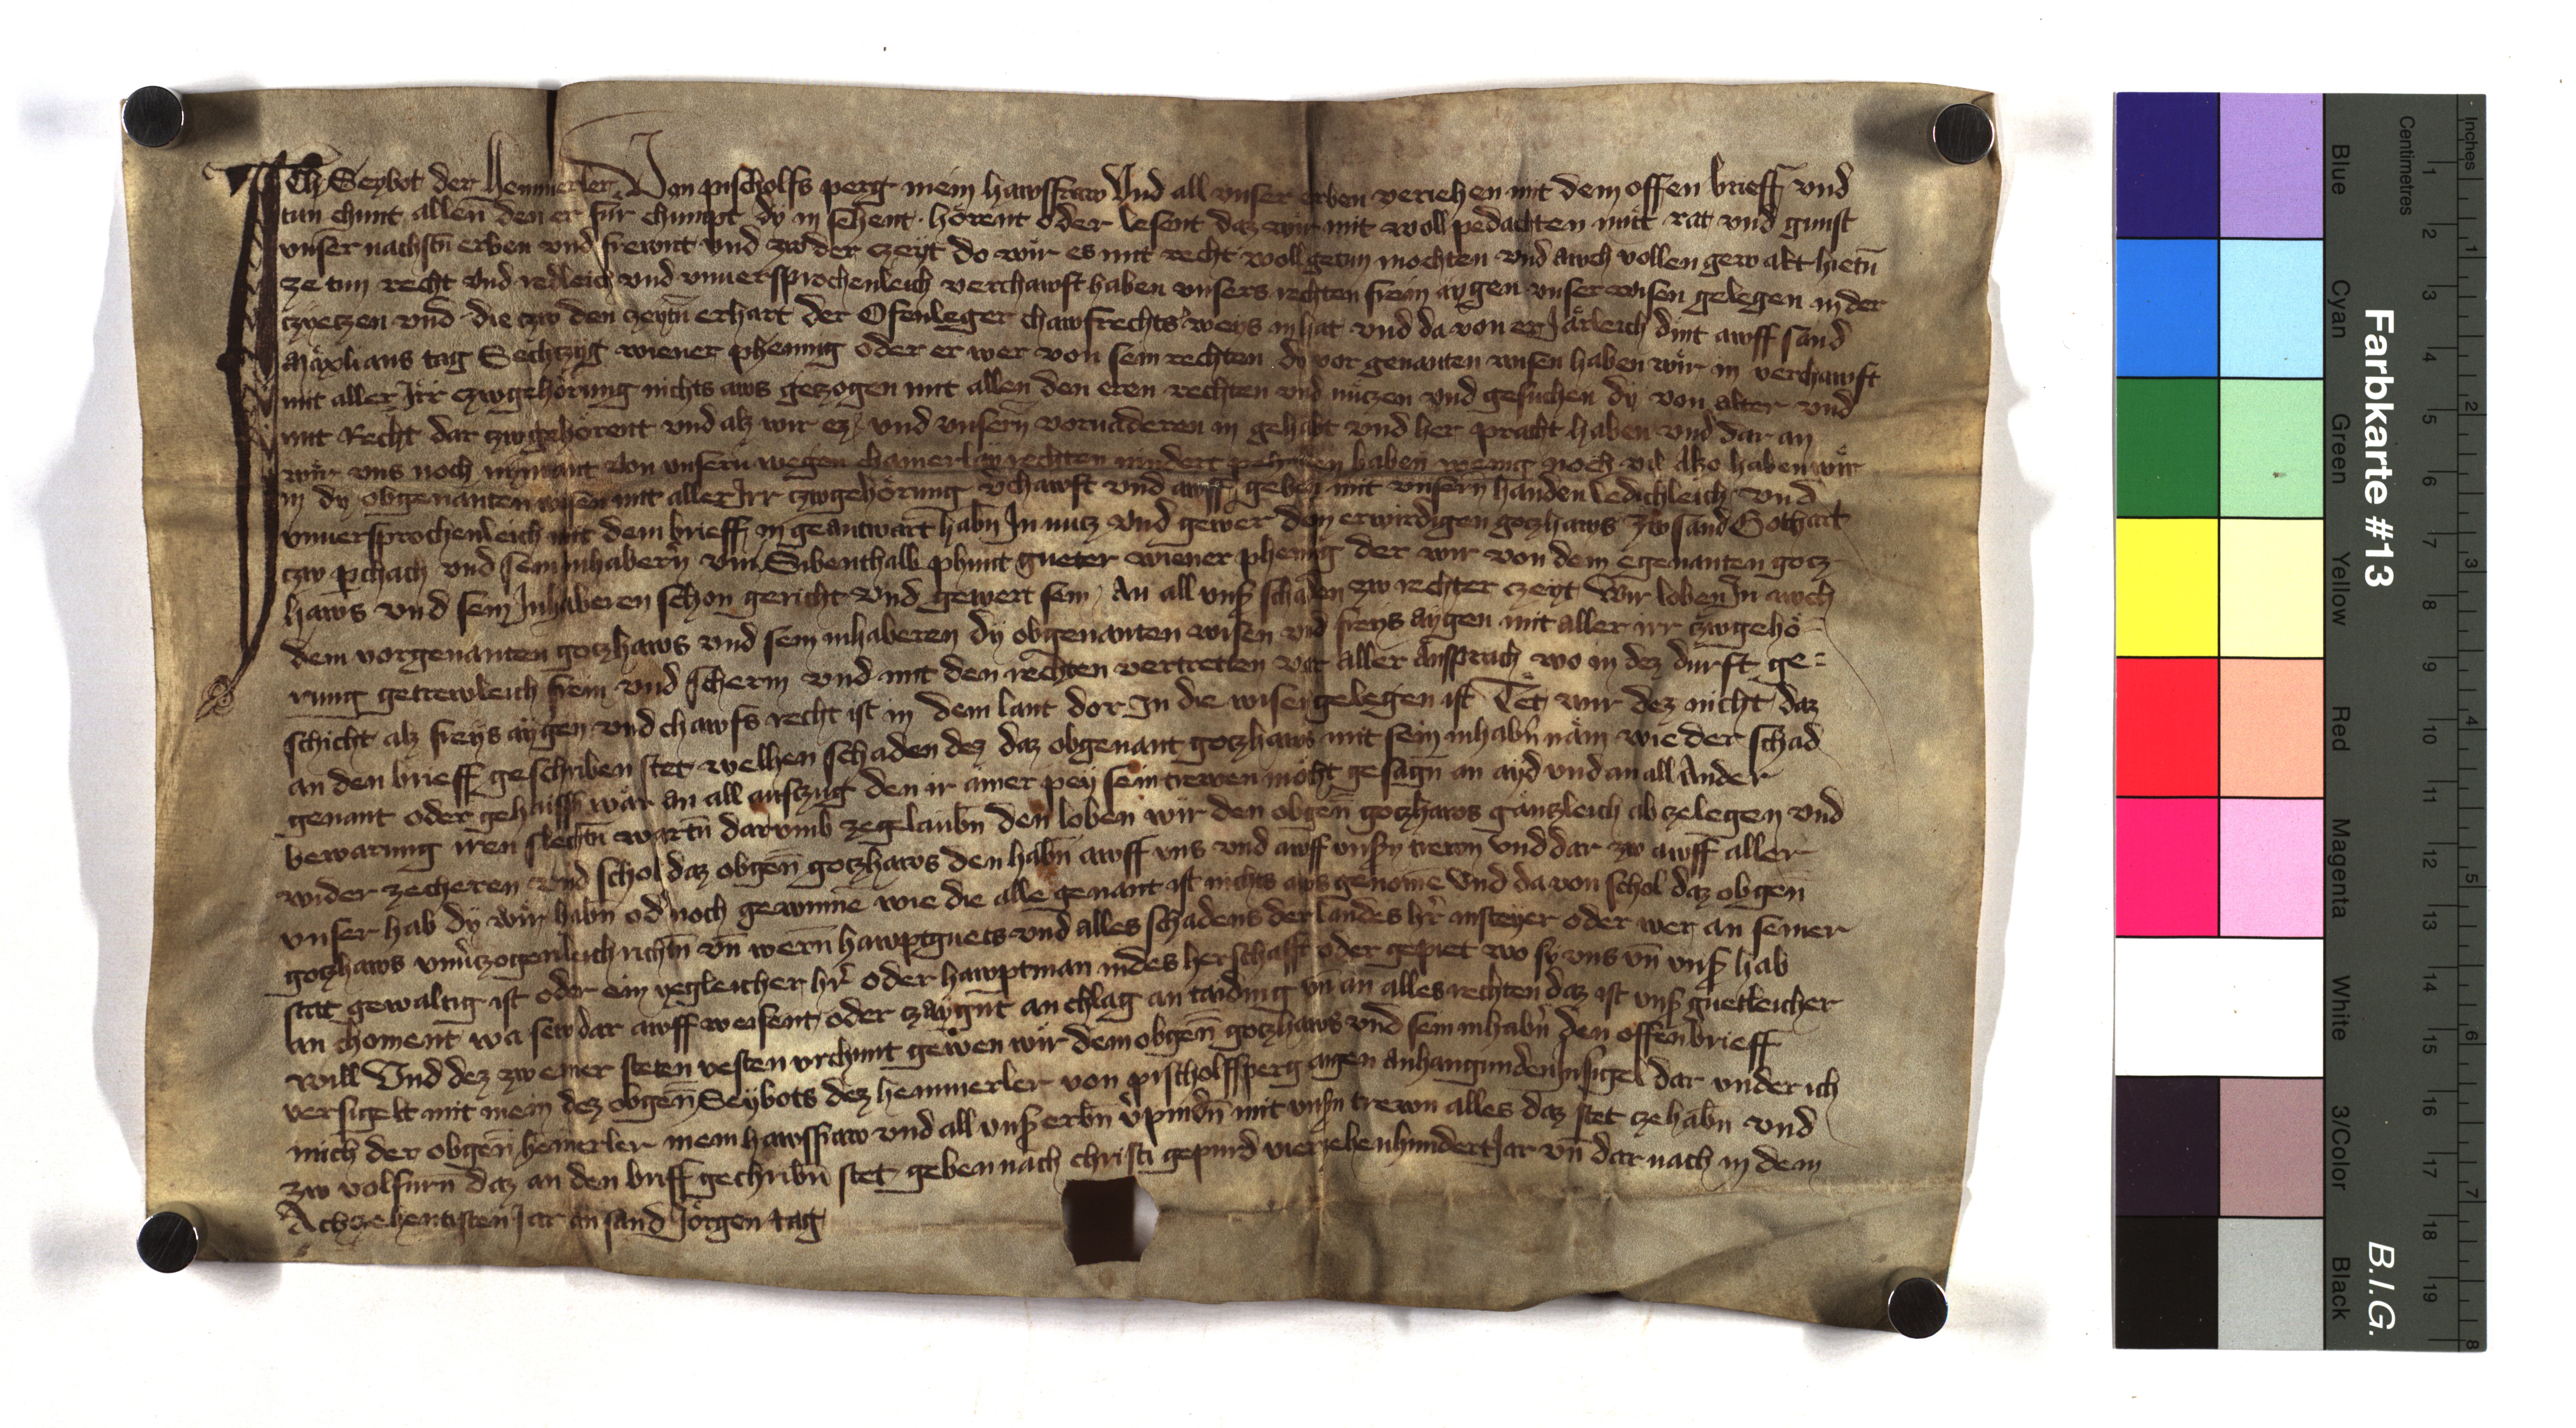 Ich Seybot der Hemmerler Von pischolfs perg mein hawsfraw Und all vnser erben veriehen mit dem offen brieff vnd
tun chunt allen den er für chumpt dy in sehent hörent oder lesent daz wir mit woll pedachten mut rat vnd gunst
vnser nachstn erben vnd frewnt vnd zw der czeyt do wir es mit recht woll getun mochten vnd awch vollen gewalt hietn
ze tun recht vnd redleich vnd vnuersprochenleich verchawft haben vnsers rechten frein aygen vnser wisen gelegen in der
vnd die czw den czeytn erhart der Ofenleger chawfrechts weys in hat vnd da von er Järleich dint awff sand
tag Sechtzyg wiener phennig oder er wer von sein rechten dy vor genanten wisen haben wir in verchawft
mit aller Irr czwgehörung nichts aws getzogen mit allen den eren rechten vnd nützen vnd gesuchen dy von alter vnd
mit Recht dar czwgehörent vnd alz wir ez vnd vnsern voruaderen in gehabt vnd her pracht haben vnd dar an
wir vns noch niemant von vnsern wegen chainerlay rechten nindert pehalten haben wenig noch vil Also haben wir
in dy obgenanten wisen mit aller Irr czwgehörung vchawft vnd awff geben mit vnsern handen ledichleich vnd
vnuersprochenleich mit dem brieff in geantwart habn In nutz vnd gewer dem erwirdigen gotzhaws zw sand Gothart
czw pchach vnd sein inhabern vm Sibenthalb phunt gueter wiener phenig der wir von dem egenanten gotz
haws vnd sein Inhaberen schon gericht vnd gewert sein An all vnser schaden zw rechter czeyt Wir loben In awch
dem vorgenanten gotzhaws vnd sein inhaberen dy obgenanten wisen vnd freys aygen mit aller irr czwgehö
rung getrewleich frein vnd scherm vnd mit den rechten vertretten vor aller Ansprach wo in dez durft ge=
schicht alz freys aygen vnd chawfs recht ist in dem lant dor In die wisen gelegen ist Tet wir dez nicht daz
an den brieff geschriben stet welhen schaden dez daz obgenant gotzhaws mit sein inhabn näm wie der schad
genant oder gehaissn wär an all aufczug den ir ainer pey sein trewen möcht gesagn an ayd vnd an all Ander
bewarung iren slechtn wartn darvmb zegelaubn den loben wir den obgen gotzhaws gänzleich ab zelegen vnd
wider zecheren vnd schol daz obgen gotzhaws den habn awff vns vnd awff vnsern trewn vnd dar zw awff aller
vnser hab dy wir habn od noch gewinne wie die alle genant ist nichts aws genome Und da von schol daz obgen
gotzhaws vnuczogenleich richtn vn wern hawptguets vnd alles schadens der landes hr in steyer oder wer an seiner
stat gewaltig ist oder ein yegleicher hr oder hawptman in des herschafft oder gepiet wo sy vns vn vnser hab
an choment wa sew dar awff weisent oder czaygnt an chlag an taiding vn an alles rechten daz ist vnser guetleicher
will Und dez zw einer steten vesten vrchunt geben wir dem obgen gotzhaws vnd sein inhabn den offen brieff
versigelt mit mein dez obgen Seybots dez hemmerler von pischolffperg aigen anhangunden Insigel dar vnder ich
mich der obgen hemerler mein hawsfraw vnd all vnser erbn vpindn mit vnsern trewn alles daz stet ze habn vnd
zw volfürn daz an den briff gechribn stet geben nach christi gepurd vierzehenhundert Jar vn dar nach in dem
Achzehentisten Jar an sand Jörgen tag
Farbkarte #13
B.I.G.
Centimetres
Inches
Blue
Cyan
Green
Yellow
Red
Magenta
White
3/Color
Black
1 2 3 4 5 6 7 8 9 10 11 12 13 14 15 16 17 18 19
1 2 3 4 5 6 7 8